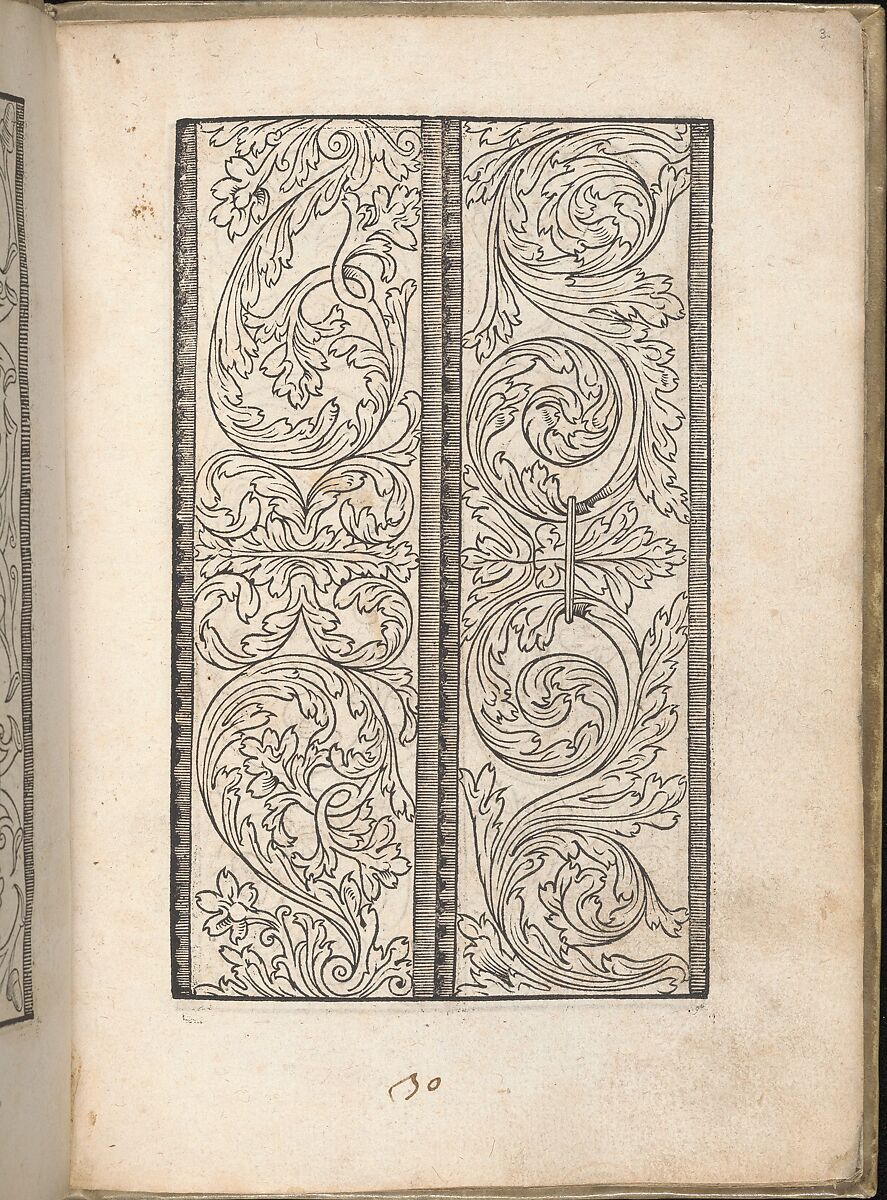 3.
30